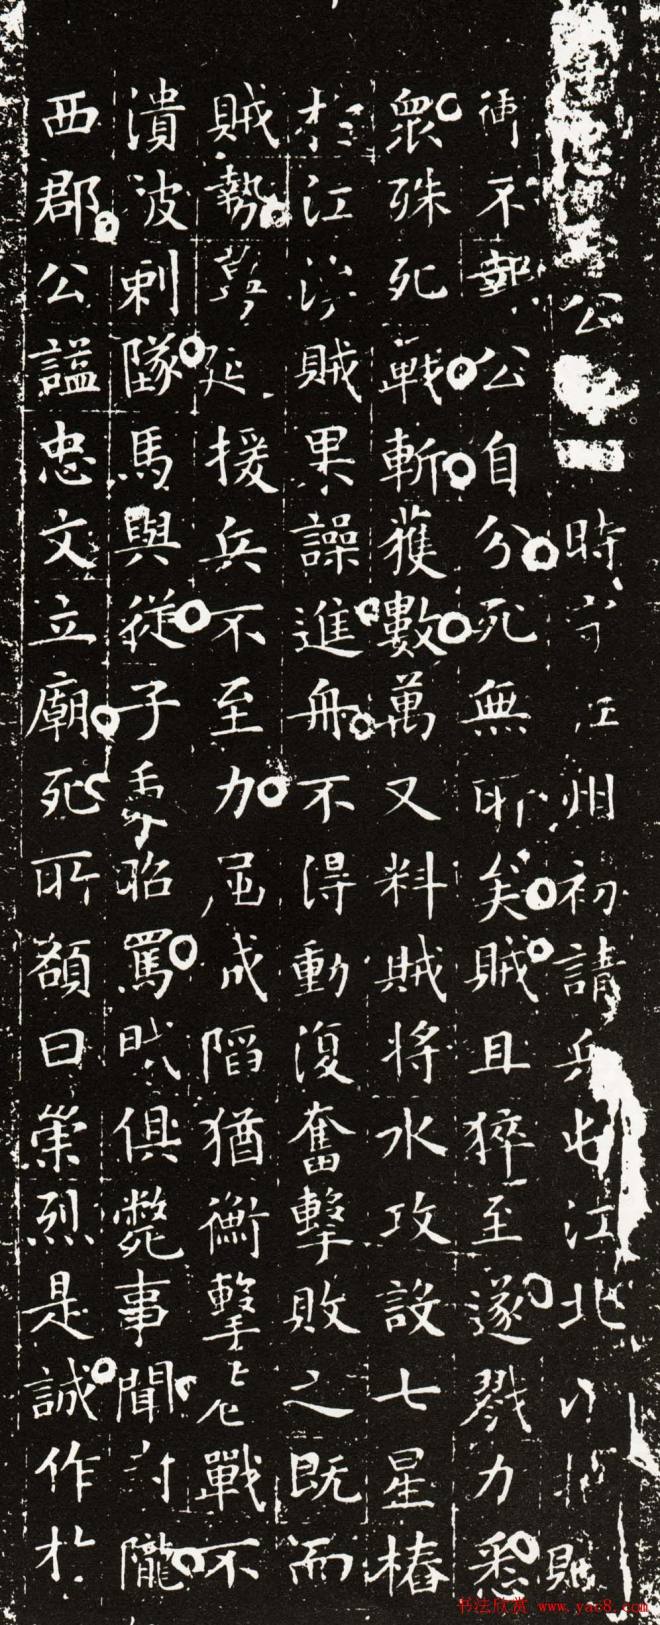 公時守江州初請兵屯江北以扼賊
衝不報公自分死無所矣賊且猝至遂戮力悉
眾殊死戰斬獲數萬又料賊將水攻設七星樁
於江涘賊果譟進舟不得動復奮擊敗之既而
賊勢蔓延援兵不至力屈城陷猶衝擊巷戰不
潰被刺墜馬與從子秉昭罵賊俱斃事聞封隴
西郡公諡忠文立廟死所額曰崇烈是誠作於
书法欣赏 www.yac8.com